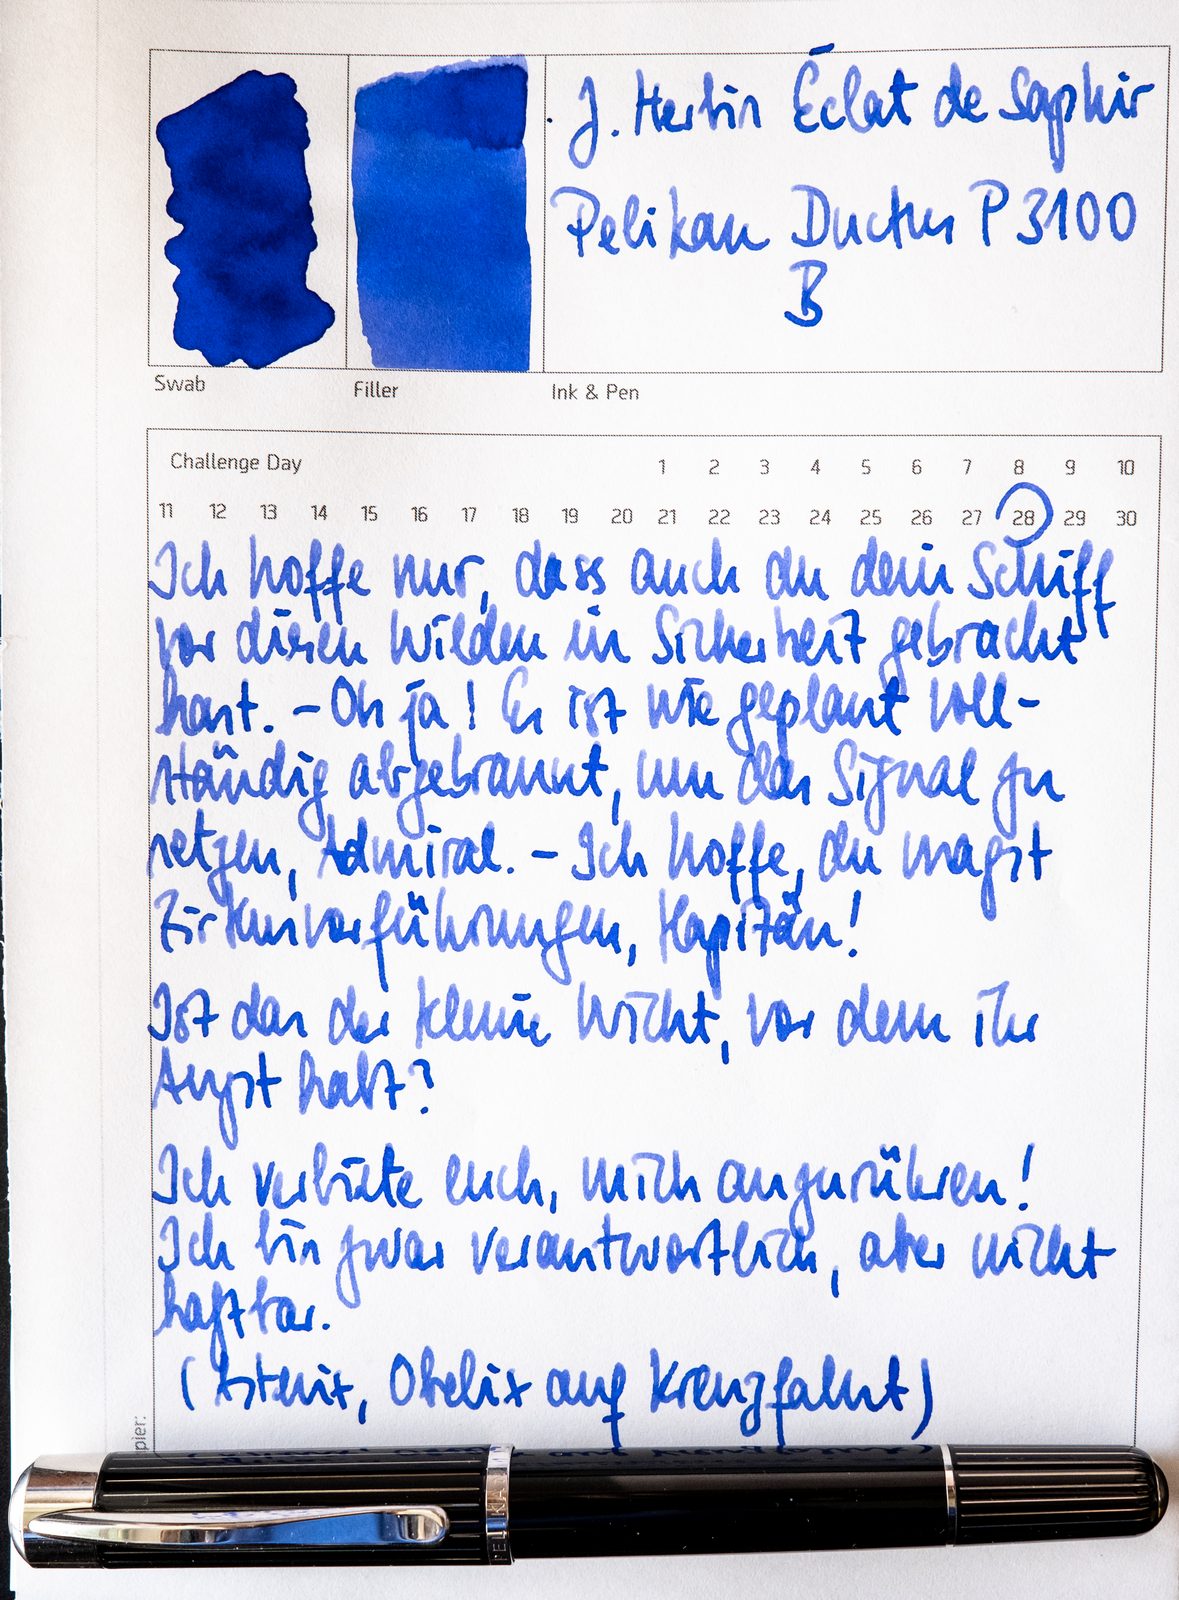 J. Herbin Éclat de Saphir
Pelikan Ductus P3100
B
Swab
Filler
Ink & Pen
Challenge Day 1 2 3 4 5 6 7 8 9 10
11 12 13 14 15 16 17 18 19 20 21 22 23 24 25 26 27 28 29 30
Ich hoffe nur, dass auch du dein Schiff
vor diesen Wilden in Sicherheit gebracht
hast. – Oh ja! Es ist wie geplant voll-
ständig abgebrannt, um das Signal zu
setzen, Admiral. – Ich hoffe, du magst
Zirkusvorführungen, Kapitän!
Ist das der kleine Wicht, vor dem ihr
Angst habt?
Ich verbitte euch, mich anzurühren!
Ich bin zwar verantwortlich, aber nicht
haftbar.
(Asterix, Obelix auf Kreuzfahrt)
pier:
PELIKAN